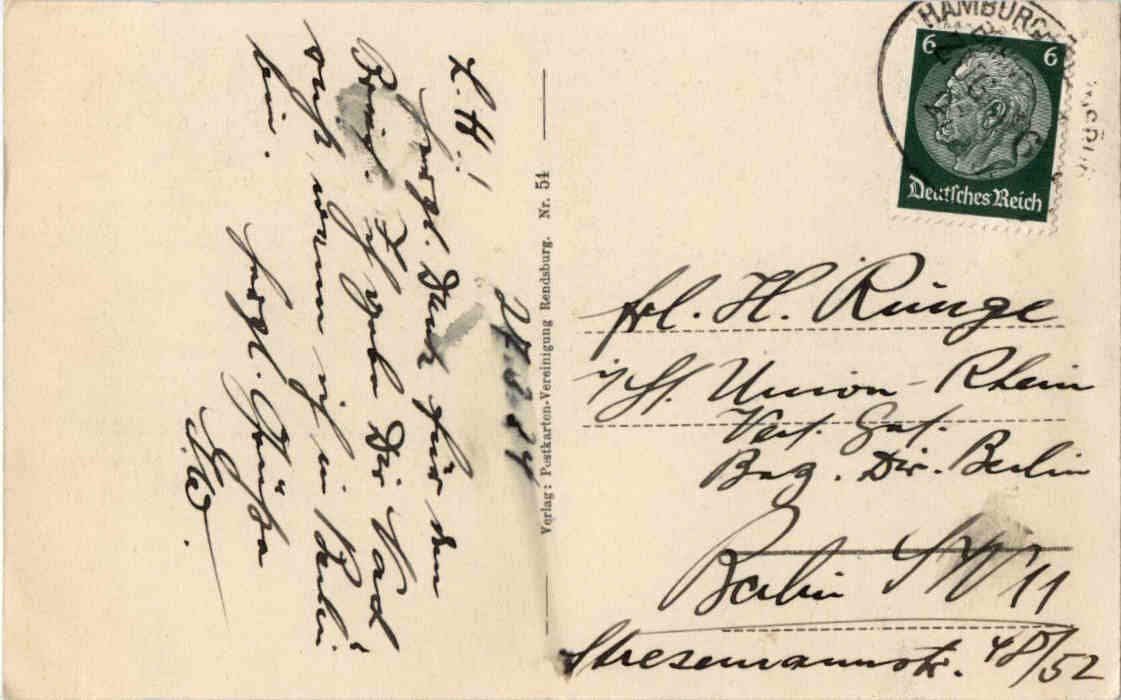 27. 8. 34
L. H.!
herzl. Dank für den
Brief. Ich gebe Dir
auf, wenn ich in Berlin
bin.
herzl. Grüße
Ed.
Verlag: Postkarten-Vereinigung Rendsburg. Nr. 54
HAMBURG
6 6
Deutsches Reich
Frl. H. Runge
Union-Rhein
Vers. Ges.
Bez. Dir. Berlin
Berlin SW 11
Stresemannstr. 48/52